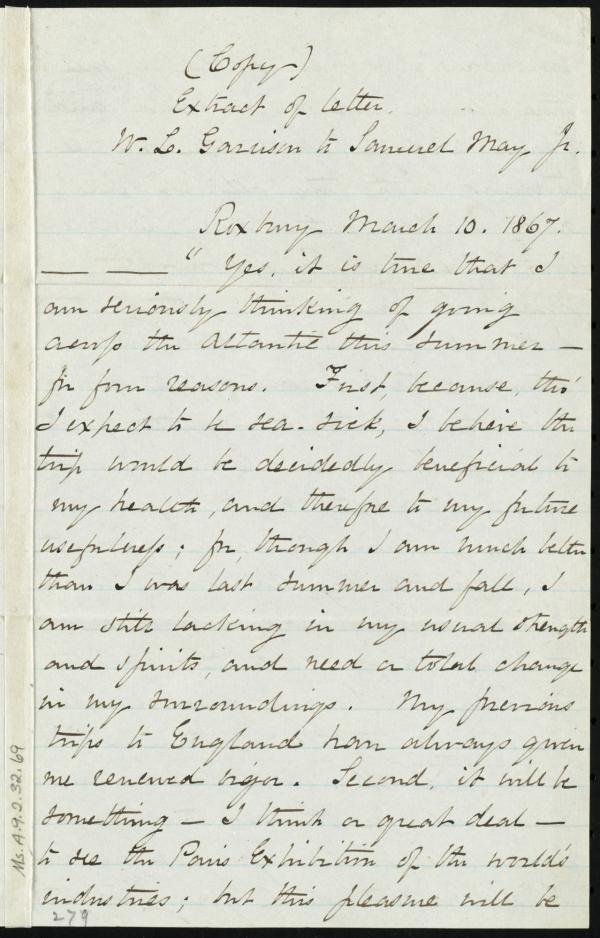 (Copy)
Extract of letter.
W. L. Garrison to Samuel May Jr.
Roxbury March 10. 1867.
— — "Yes, it is true that I
am seriously thinking of going
across the Atlantic this summer —
for four reasons. First, because, tho'
I expect to be sea-sick, I believe the
trip would be decidedly beneficial to
my health, and therefore to my future
usefulness; for, though I am much better
than I was last summer and fall, I
am still lacking in my usual strength
and spirits, and need a total change
in my surroundings. My previous
trips to England have always given
me renewed vigor. Second, it will be
something — I think a great deal —
to see the Paris Exhibition of the world's
industries; but this pleasure will be
279
Ms. A.9.2.32.69